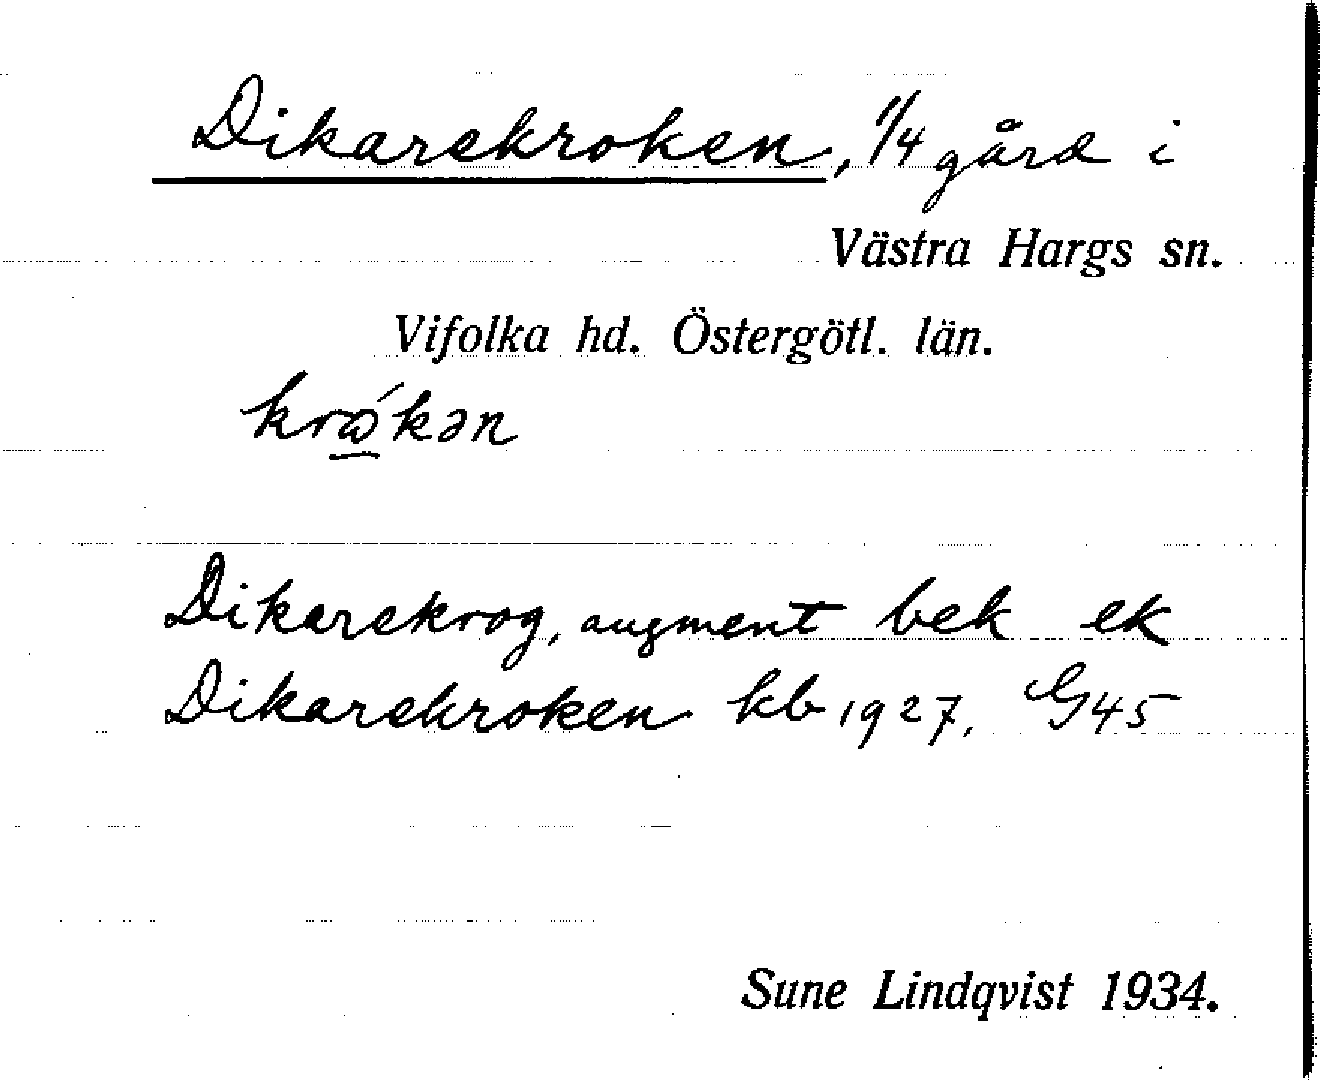 Dikarekroken, 1/4 gård i
Västra Hargs sn.
Vifolka hd. Östergötl. län.
Dikarekrog, augment bek ek
Dikarekroken kb 1927, G45
Sune Lindqvist 1934.